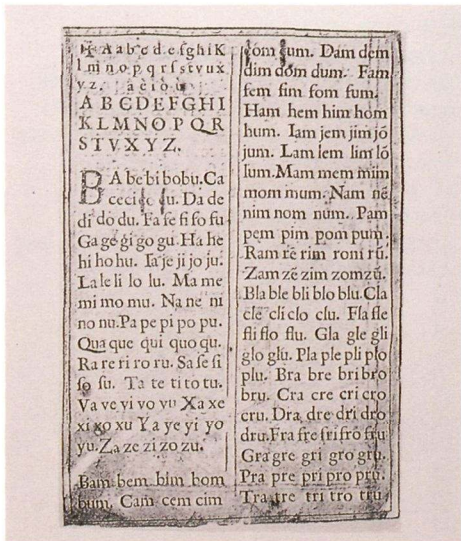 ✠ A a b c d e f g h i K
l m n o p q r ſ s t v u x
y z. a e i o u
A B C D E F G H I
K L M N O P Q R
S T V X Y Z.
BA be bi bo bu. Ca
ce ci ço çu. Da de
di do du. Fa fe fi fo fu
Ga ge gi go gu Ha he
hi ho hu. Ia je ji jo ju.
La le li lo lu. Ma me
mi mo mu. Na ne ni
no nu. Pa pe pi po pu.
Qua que qui quo qu.
Ra re ri ro ru. Sa ſe ſi
ſo ſu. Ta te ti to tu.
Va ve vi vo vu Xa xe
xi xo xu Ya ye yi yo
yu. Za ze zi zo zu.
Bam bem bim bom
bum. Cam cem cim
çom çum. Dam dem
dim dom dum. Fam
fem fim fom fum.
Ham hem him hom
hum. Iam jem jim jō
jum. Lam lem lim lō
lum. Mam mem mim
mom mum. Nam nē
nim nom num. Pam
pem pim pom pum.
Ram rē rim rom rū.
Zam zē zim zom zū.
Bla ble bli blo blu. Cla
cle cli clo clu. Fla fle
fli flo flu. Gla gle gli
glo glu. Pla ple pli plo
plu. Bra bre bri bro
bru. Cra cre cri cro
cru. Dra dre dri dro
dru. Fra fre fri fro fru
Gra gre gri gro gru.
Pra pre pri pro pru.
Tra tre tri tro tru